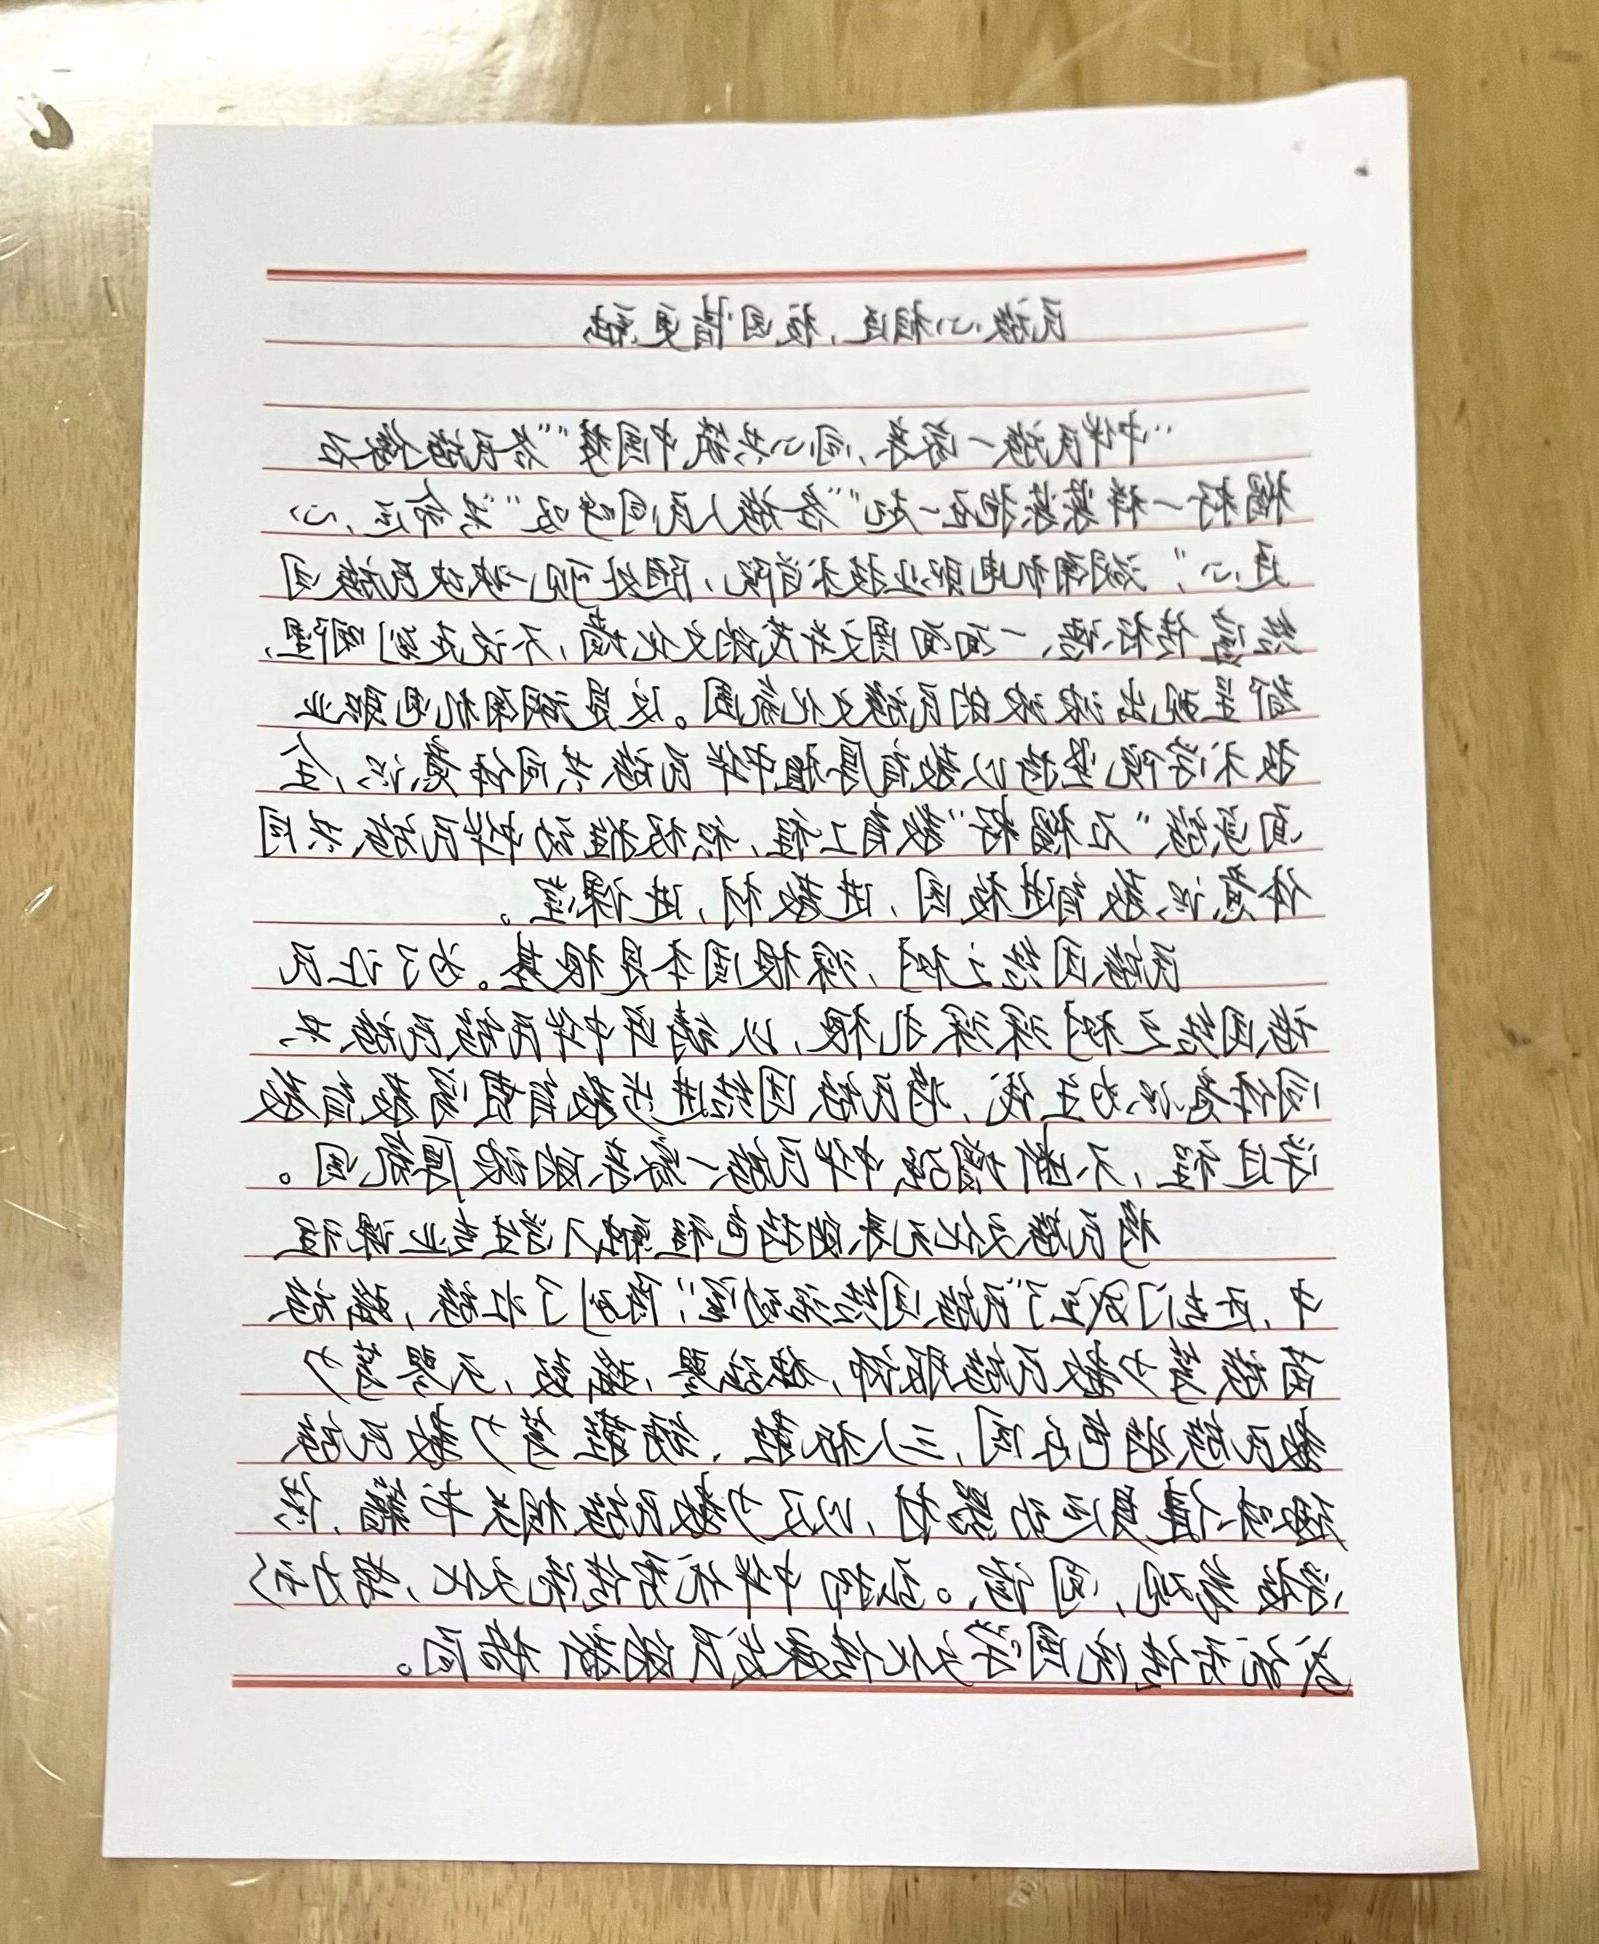 民族心相连，校园情更融
“中华民族一家亲，同心共筑中国梦”“各民族像石
榴籽一样紧紧抱在一起”“各族人民同呼吸”“共命运，心
连心”，湖南机电职业技术学院，随处可见一块块民族团
结宣传标语、一面面图文并茂的文化墙，不论走到哪里，
都呈现出浓浓的民族文化氛围。这是湖南机电职业
技术学院坚持以教育厚植中华民族共同体意识，全
面实施“石榴籽”教育工程，积极推动中华民族共同
体意识教育进校园，进教材，进课堂。
民族团结之树，深根固本是根基。为了让民
族团结之树深深扎根，以铸牢中华民族民族共
同体意识为主线，将民族团结进步教育贯穿教育教
学过程，不断增强中华民族一家亲的浓厚氛围。
将民族文化元素的特色和融入学生专业课程
中，还专门设立了“民族团结活动室”，陈列了壮族，
苗族等少数民族服饰，芦笙，等少
数民族特色乐园，三人板鞋、等少数民族
趣味体育运动器材，以及少数民族相关书籍，供
学生参观，阅读。弘扬中华优秀传统文化，努力形
成优秀传统文化传承发展